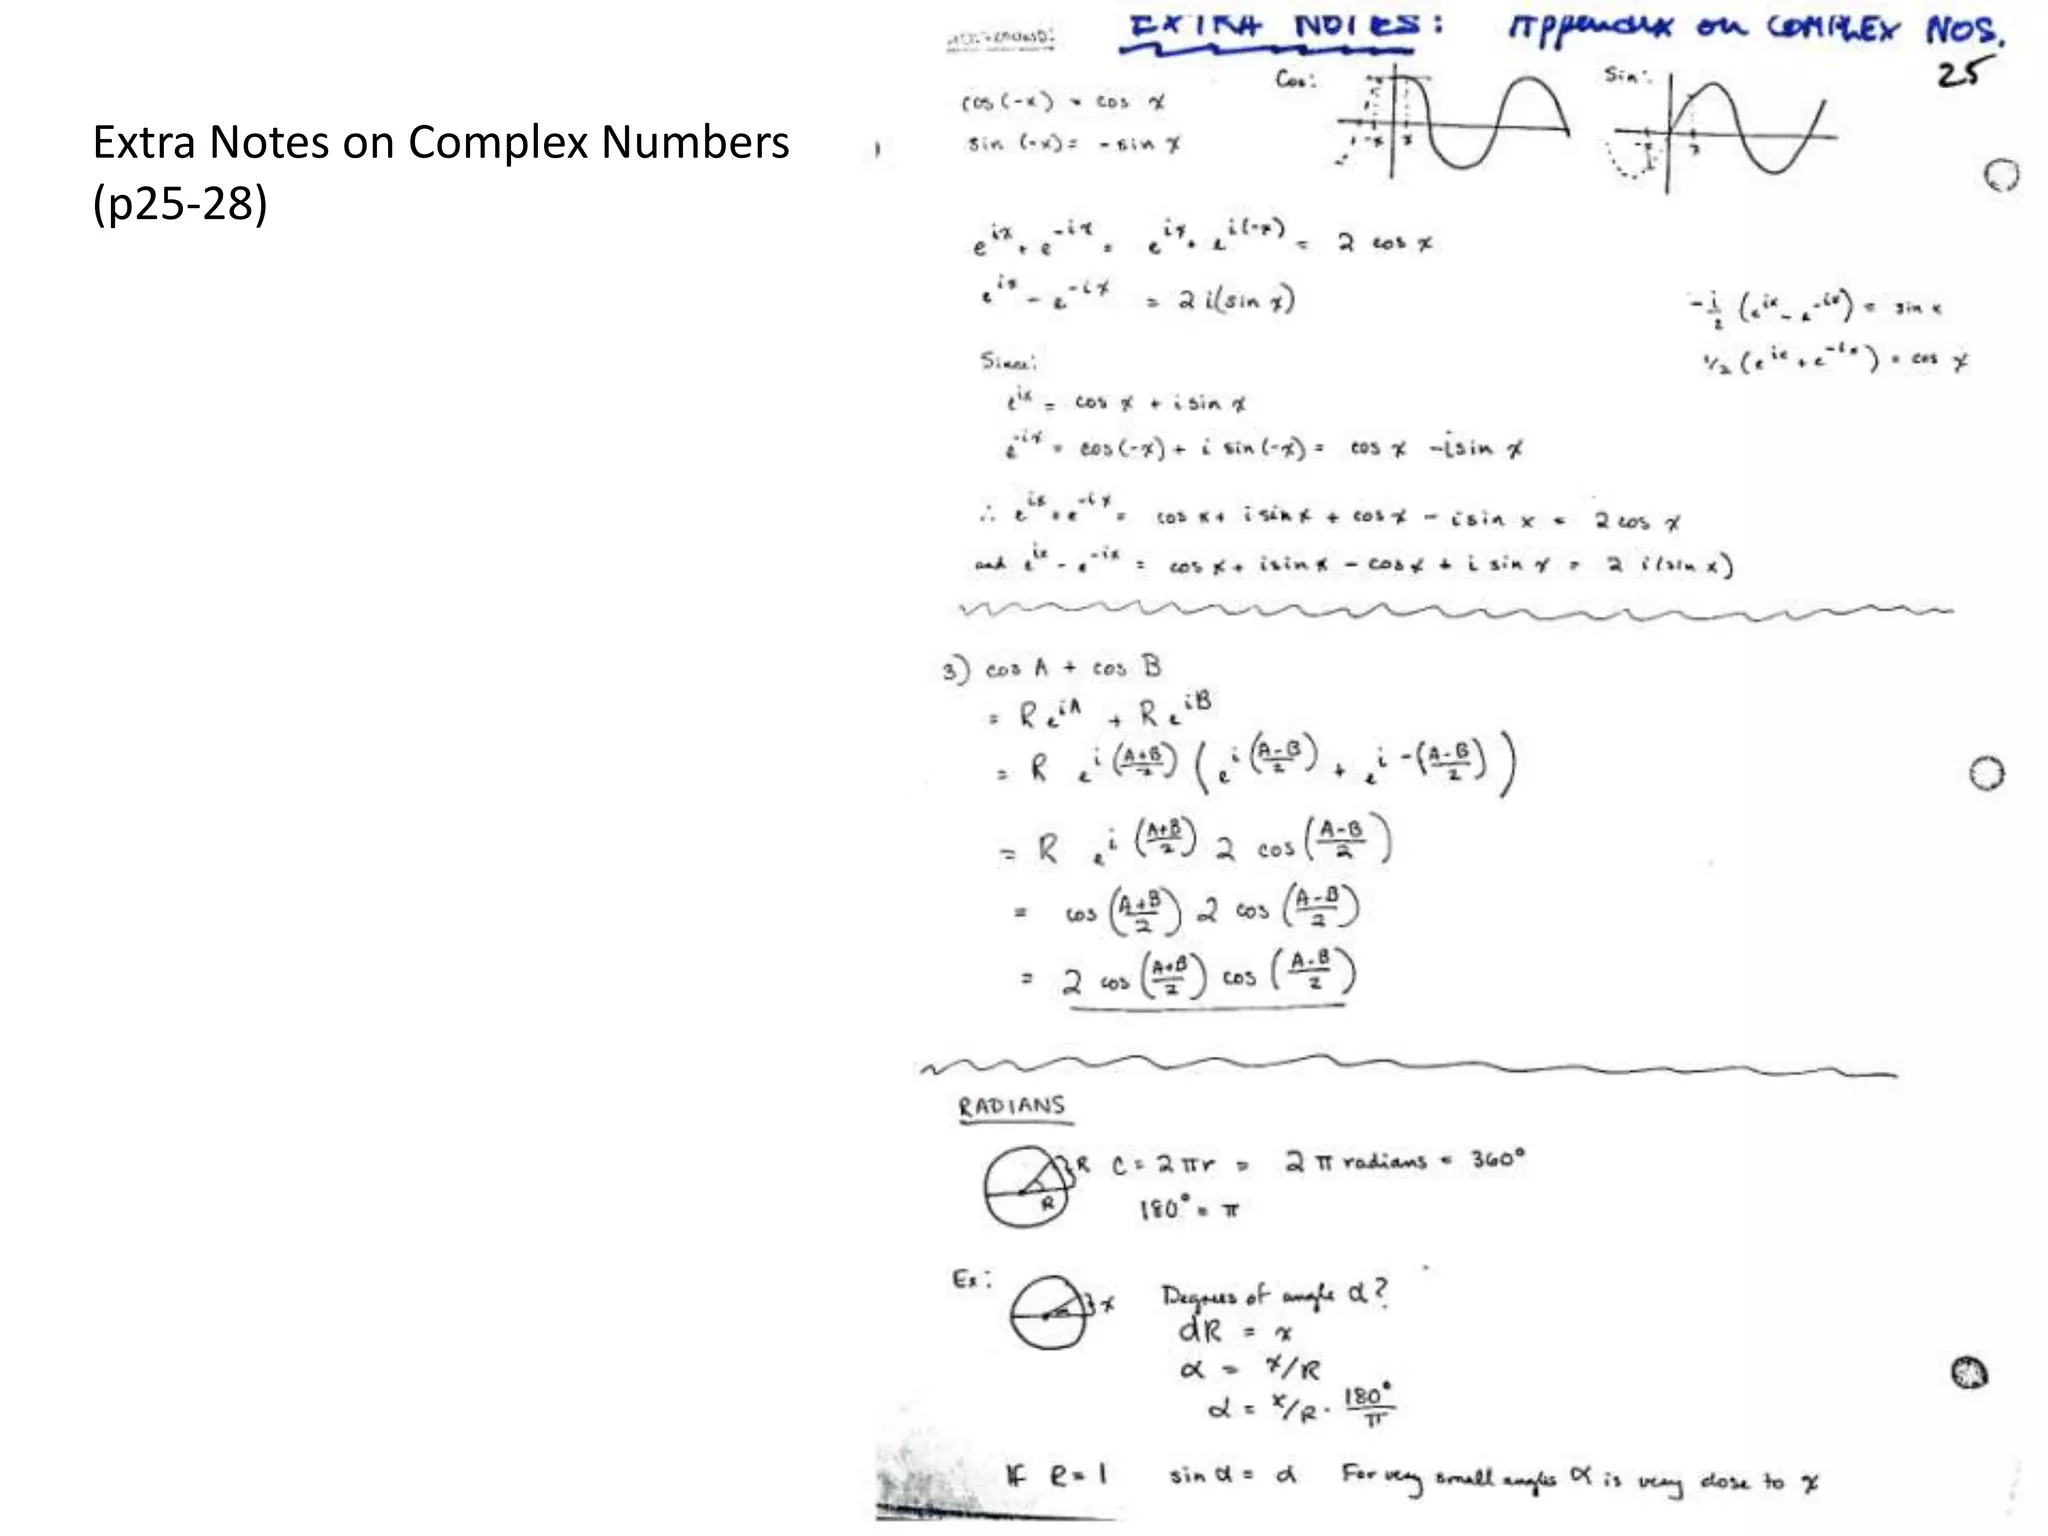 Extra Notes on Complex Numbers
(p25-28)
EXTRA NOTES: Appendix on COMPLEX NOS.
25
Cos:
Sin:
cos(-x) = cos x
sin (-x) = -sin x
e^{ix} + e^{-ix} = e^{ix} + e^{i(-x)} = 2 cos x
e^{ix} - e^{-ix} = 2 i(sin x)
-i/2 (e^{ix} - e^{-ix}) = sin x
1/2 (e^{ix} + e^{-ix}) = cos x
Since:
e^{ix} = cos x + i sin x
e^{-ix} = cos(-x) + i sin(-x) = cos x - i sin x
∴ e^{ix} + e^{-ix} = cos x + i sin x + cos x - i sin x = 2 cos x
and e^{ix} - e^{-ix} = cos x + i sin x - cos x + i sin x = 2 i(sin x)
3) cos A + cos B
= R e^{iA} + R e^{iB}
= R e^{i(A+B/2)} (e^{i(A-B/2)} + e^{i-(A-B/2)})
= R e^{i(A+B/2)} 2 cos (A-B/2)
= cos (A+B/2) 2 cos (A-B/2)
= 2 cos (A+B/2) cos (A-B/2)
RADIANS
R C = 2πr = 2π radians = 360°
R 180° = π
Ex: x Degrees of angle α?
αR = x
α = x/R
α = x/R · 180°/π
IF R = 1 sin α = α For very small angles α is very close to x